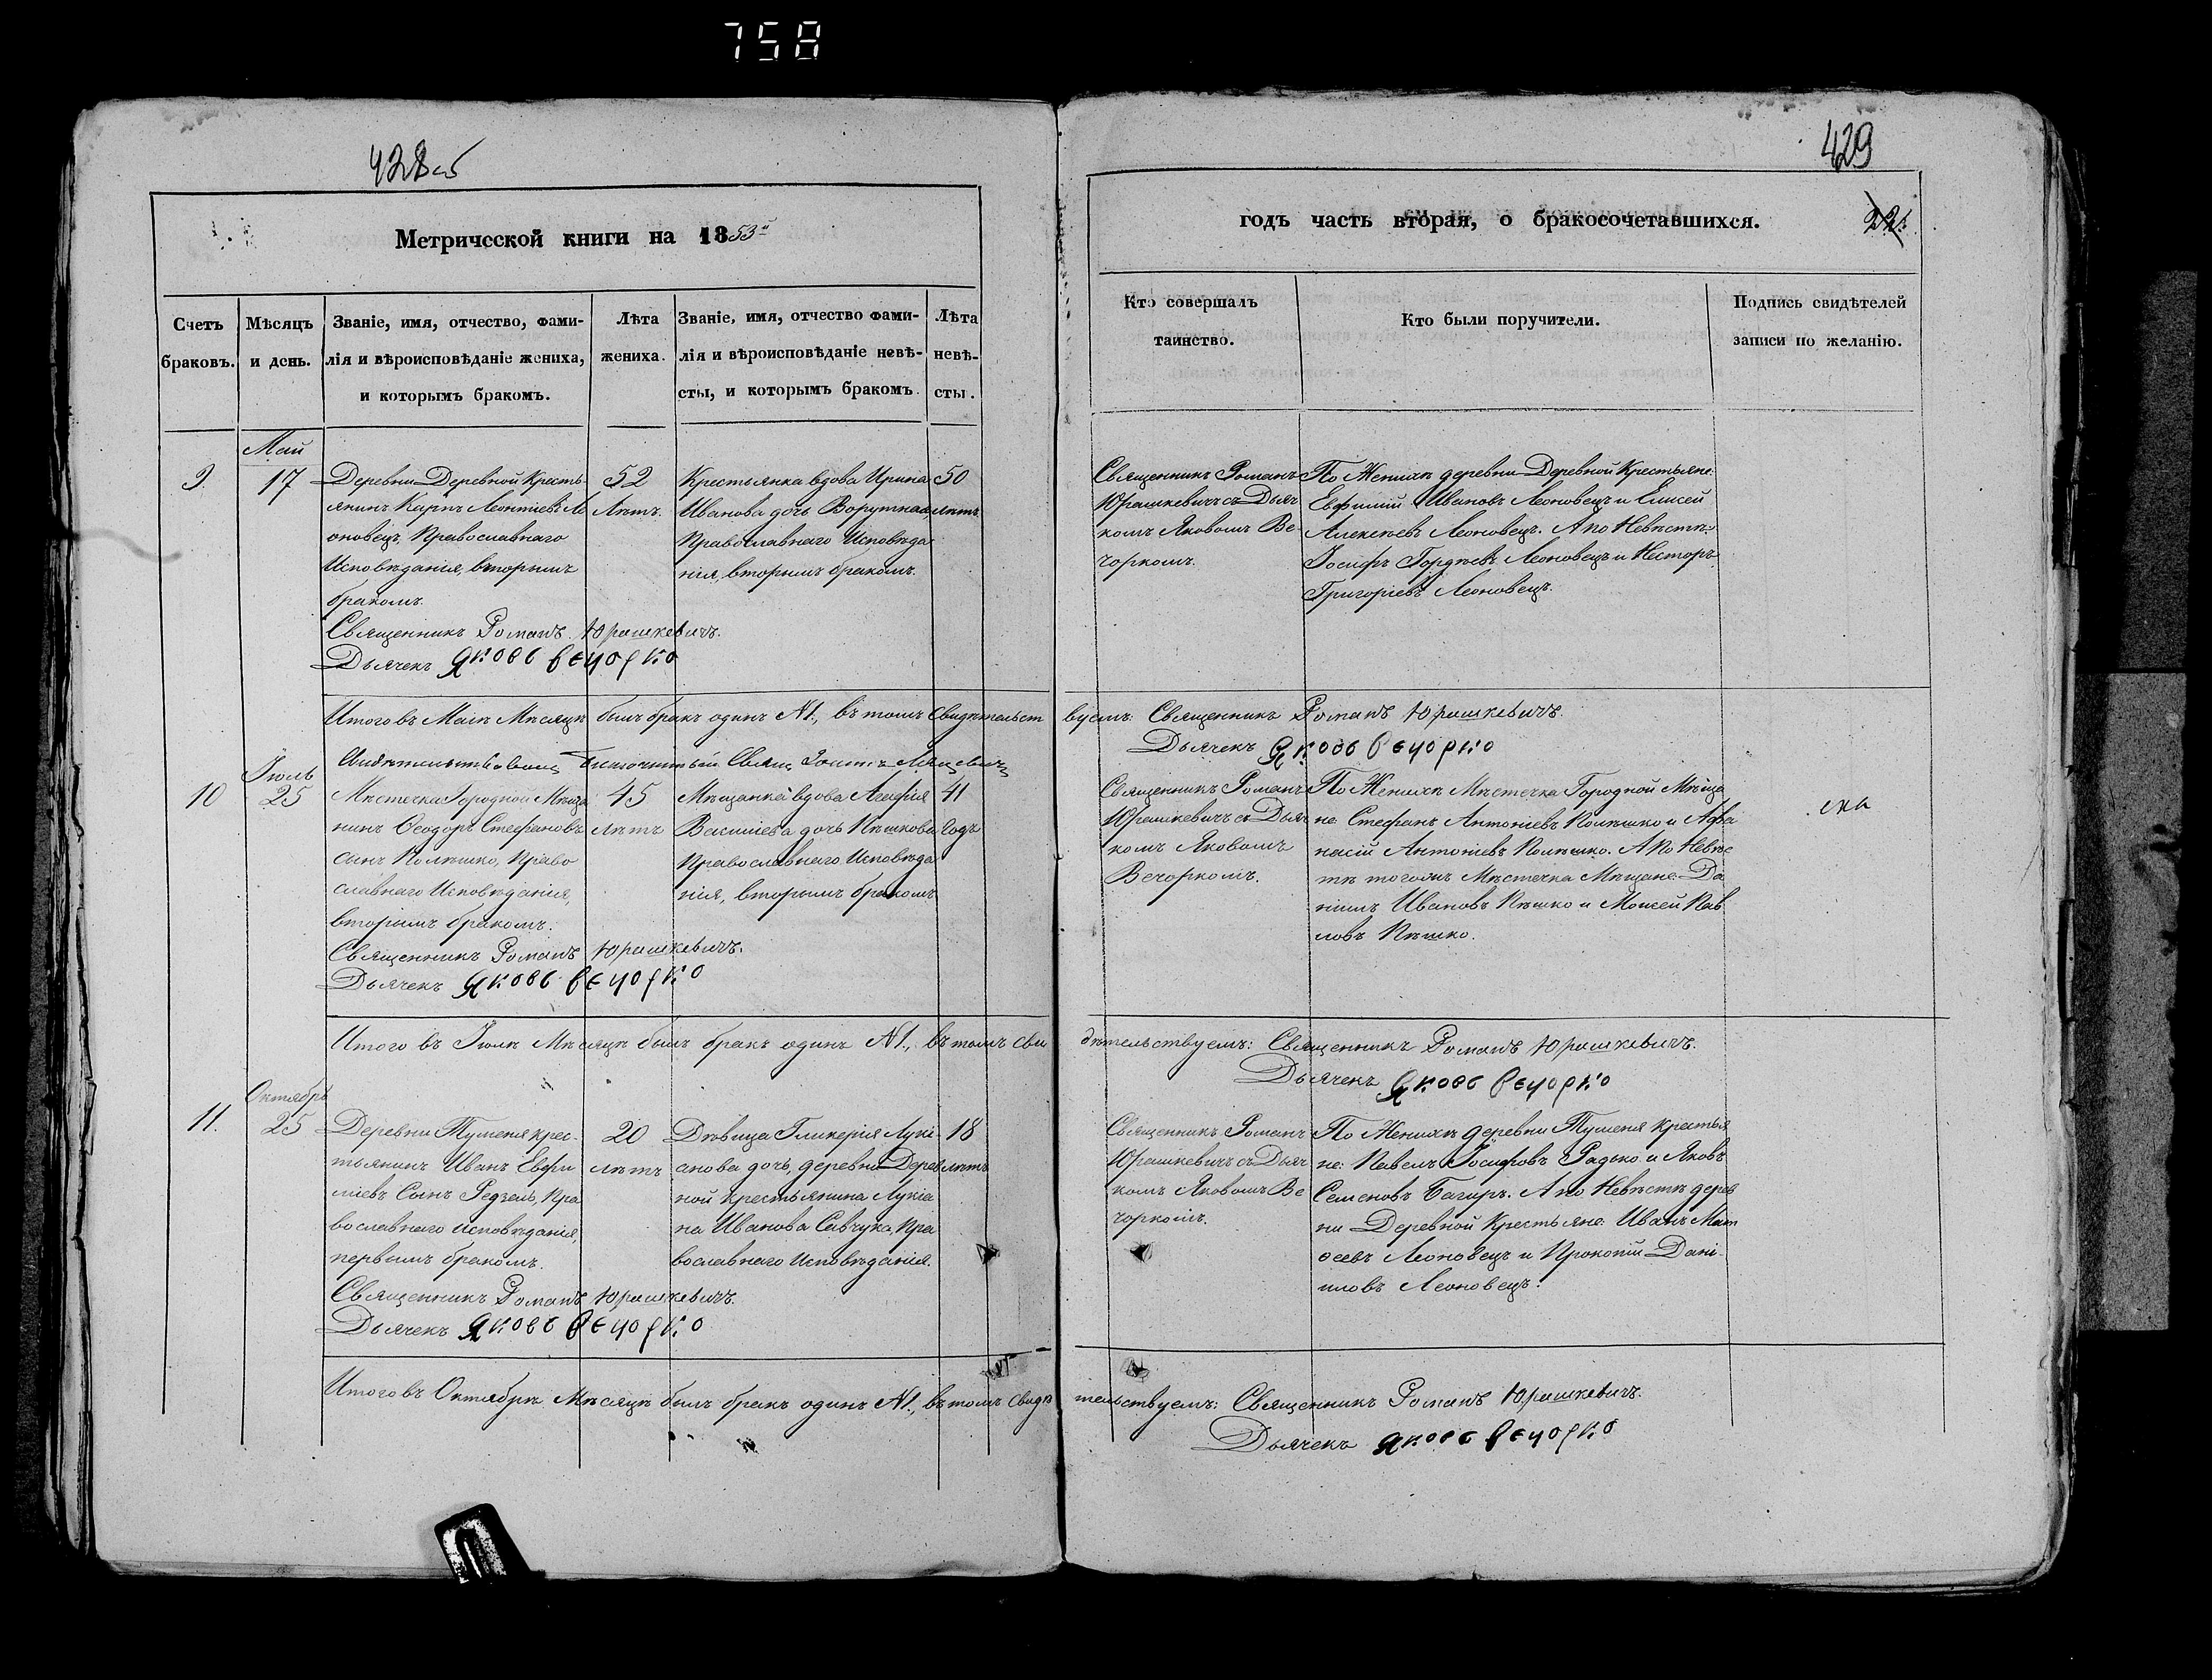 758
428об
429
Метрической книги на 1853й
годъ часть вторая, о бракосочетавшихся.
Счетъ браковъ.
Мѣсяцъ и день.
Званіе, имя, отчество, фами-
лія и вѣроисповѣданіе жениха,
и которымъ бракомъ.
Лѣта
жениха.
Званіе, имя, отчество фами-
лія и вѣроисповѣданіе невѣ-
сты, и которымъ бракомъ.
Лѣта
невѣ-
сты.
Кто совершалъ
таинство.
Кто были поручители.
Подпись свидѣтелей
записи по желанію.
9
Май
17
Деревни Деревной Кресть
янинъ Карпъ Леонтіевъ Ле
оновецъ, Православнаго
Исповѣданія, вторымъ
бракомъ.
52
Лѣтъ.
Крестьянка вдова Ирина
Иванова дочь Ворутная,
Православнаго Исповѣда
нія, вторымъ бракомъ.
50
лѣтъ.
Священникъ Романъ
Юрашкевичъ съ Дьяч
комъ Яковомъ Ве-
чоркомъ.
По Женихѣ деревни Деревной Крестьяне:
Евфимій Ивановъ Леоновецъ и Елисей
Алексѣевъ Леоновецъ. А по Невѣстѣ:
Іосифъ Гордѣевъ Леоновецъ и Несторъ
Григоріевъ Леоновецъ.
Священникъ Романъ Юрашкевичъ.
Дьячекъ Яковъ Вечорко
Итого въ Маѣ Мѣсяцѣ былъ бракъ одинъ №1., въ томъ Свидѣтельст
вуемъ: Священникъ Романъ Юрашкевичъ.
Дьячекъ Яковъ Вечорко
Благочинный Свящ
10
Іюль
25
Мѣстечка Городной Мѣща
нинъ Ѳеодоръ Стефановъ
сынъ Полѣшко, Право
славнаго Исповѣданія,
вторымъ бракомъ.
45
лѣтъ
Мѣщанка вдова Агафія
Василіева дочь Пѣшкова
Православнаго Исповѣда
нія, вторымъ бракомъ
41
Годъ
Священникъ Романъ
Юрашкевичъ съ Дьяч
комъ Яковомъ
Вечоркомъ.
По Женихѣ Мѣстечка Городной Мѣща
не Стефанъ Антоніевъ Полѣшко и Афа
насій Антоніевъ Полѣшко. А по Невѣс
тѣ тогожъ Мѣстечка Мѣщане Да
ніилъ Ивановъ Пѣшко и Моисей Пав
ловъ Пѣшко.
Священникъ Романъ Юрашкевичъ.
Дьячекъ Яковъ Вечорко
Итого въ Іюлѣ Мѣсяцѣ былъ бракъ одинъ №1., въ томъ сви
дѣтельствуемъ: Священникъ Романъ Юрашкевичъ.
Дьячекъ Яковъ Вечорко
11.
Октябрь
25
Деревни Туменя крес-
тьянинъ Иванъ Евфи
міевъ Сынъ Редзель, Пра
вославнаго исповѣданія,
первымъ бракомъ.
20
лѣтъ
Дѣвица Гликерія Лукі-
анова дочь, деревни Дерев
ной крестьянина Лукіа
на Иванова Савчука, Пра
вославнаго Исповѣданія.
18
лѣтъ
Священникъ Романъ
Юрашкевичъ съ Дьяч
комъ Яковомъ Ве
чоркомъ.
По Женихѣ деревни Туменя крестья
не: Павелъ Іосифовъ Радько и Яковъ
Семеновъ Багиръ. А по Невѣстѣ дерев
ни Деревной Крестьяне: Иванъ Мат
ѳеевъ Леоновецъ и Прокопій Дані-
иловъ Леоновецъ.
Священникъ Романъ Юрашкевичъ.
Дьячекъ Яковъ Вечорко
Итого въ Октябрѣ Мѣсяцѣ былъ бракъ одинъ №1., въ томъ свидѣ
тельствуемъ: Священникъ Романъ Юрашкевичъ.
Дьячекъ Яковъ Вечорко